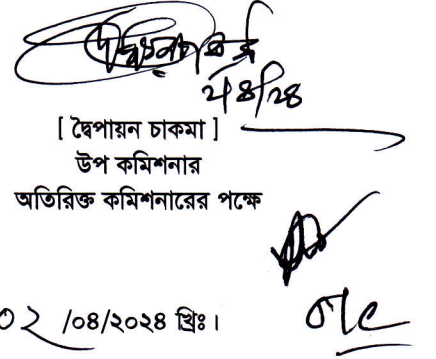 ২/৪/২৪
[ দ্বৈপায়ন চাকমা ]
উপ কমিশনার
অতিরিক্ত কমিশনারের পক্ষে
০২ /০৪/২০২৪ খ্রিঃ।